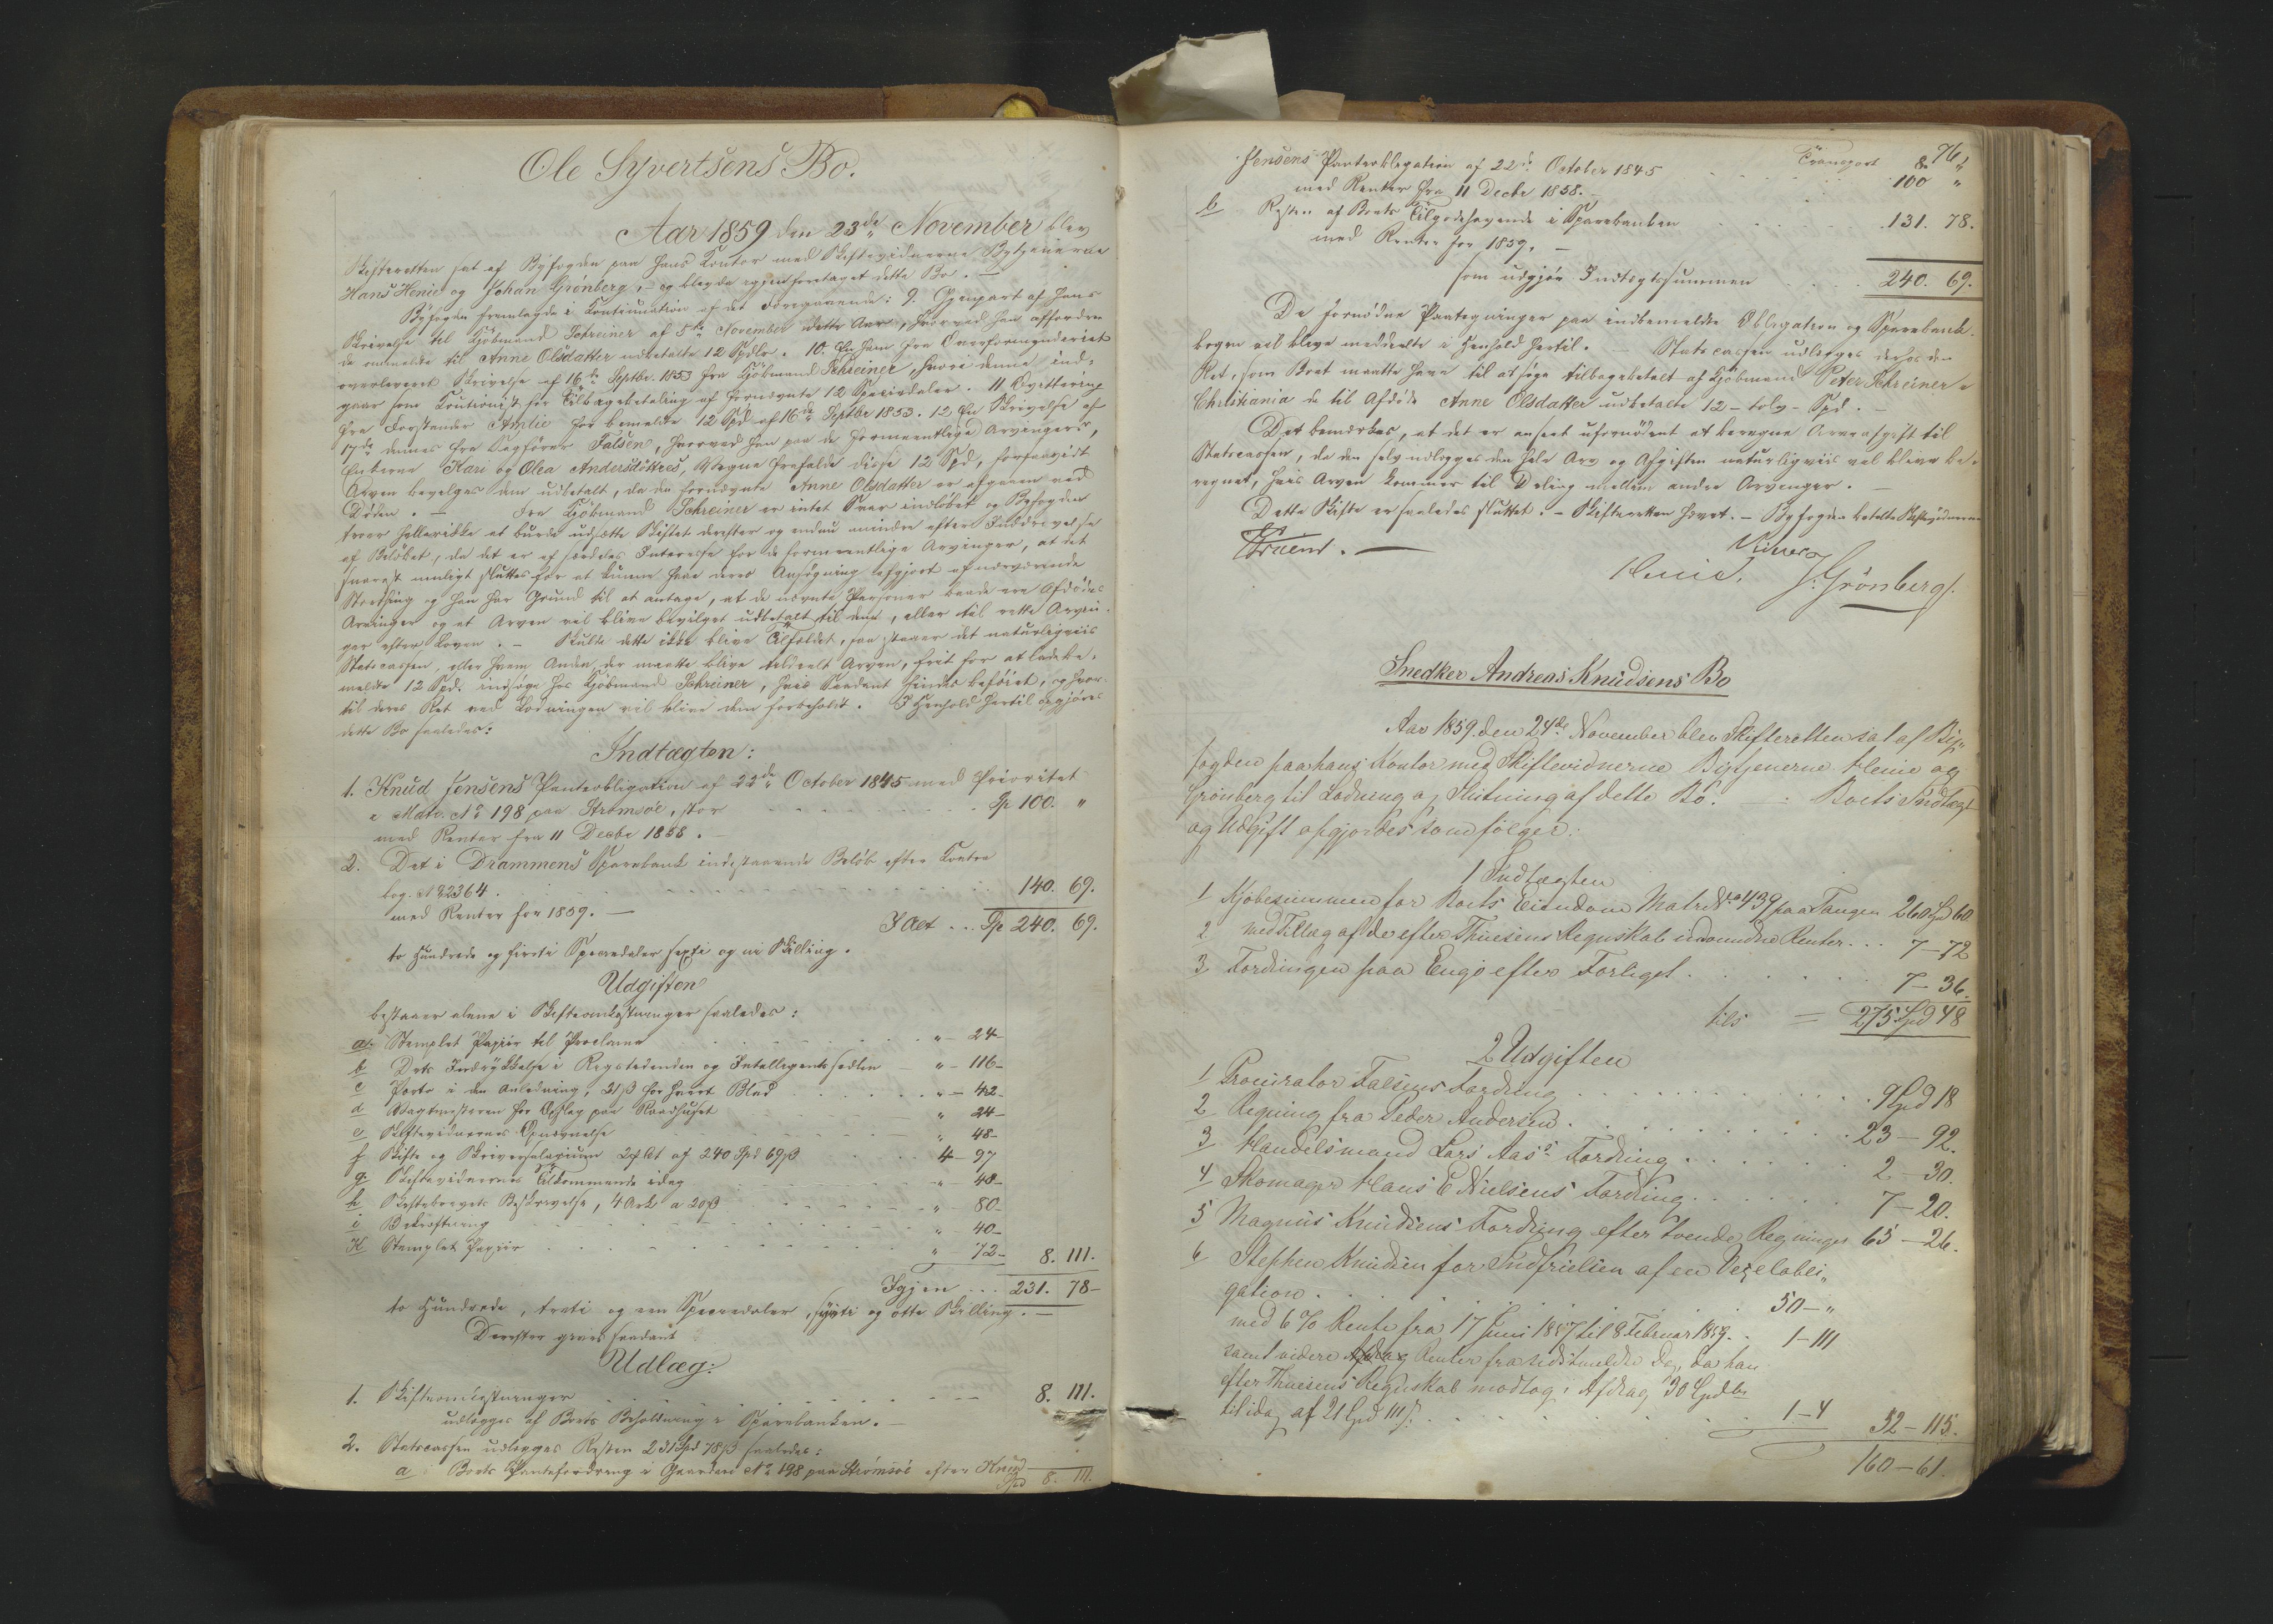 Ole Syvertsens Bo.
Aar 1859 den 23de November blev
Skifteretten sat af Byfogden paa hans Kontor med Skiftevidnerne Bytjenerne
Hans Henie og Johan Grönberg, og blev da igjenforetaget dette Bo. —
Byfogden fremlagde i Kontinuation af det Foregaaende: 9. Gjenpart af hans
Skrivelse til Kjöbmand Schreiner af 5te November dette Aar, hvorved han affordrer
de ommeldte til Anne Olsdatter udbetalte 12 Spdlr. 10. En ham fra Overformynderiet
overleveret Skrivelse af 16de Septbr. 1853 fra Kjöbmand Schreiner, hvori denne ind-
gaar som Kautionist for Tilbagebetaling af fornævnte 12 Speciedaler. 11. Qvittering
fra Forstander Amlie for bemeldte 12 Spd af 16de Septbr 1853. 12. En Skrivelse af
17de dennes fra Sagförer Falsen, hvorved han paa de formeentlige Arvingers,
Enkerne Kari og Olea Andersdöttres, Vegne frafalder disse 12 Spd, forsaavidt
Arven bevilges dem udbetalt, da den fornævnte Anne Olsdatter er afgaaen ved
Döden. — Fra Kjöbmand Schreiner er intet Svar indlöbet og Byfogden
troer hellerikke at burde udsætte Skiftet derefter og endnu mindre efter Inddrivelse
af Belöbet, da det er af særdeles Interesse for de formeentlige Arvinger, at det
snarest muligt sluttes for at kunne faae deres Ansögning afgjort af nærværende
Storthing og han har Grund til at antage, at de nævnte Personer baade ere Afdödes
Arvinger og at Arven vil blive bevilget udbetalt til dem, eller til rette Arvin-
ger efter Loven. — Skulde dette ikke blive Tilfældet, saa staaer det naturligviis
Statscassen, eller hvem Anden der maatte blive tildeelt Arven, frit for at lade be-
meldte 12 Spd. indsöge hos Kjöbmand Schreiner, hvis Saadant findes beföiet, og hvor-
til deres Ret ved Lodningen vil blive dem forbeholdt. I Henhold hertil opgjöres
dette Bo saaledes:
Indtægten:
1. Knud Jensens Panteobligation af 22de October 1845 med Prioritet
i Matr. No 198 paa Strömsöe, stor . . . Sp 100. "
med Renter fra 11 Decbr 1858. —
2. Det i Drammens Sparebank indestaaende Belöb efter Contra
bog. No 2364. . . . 140. 69.
med Renter for 1859. —
I Alt . . . Sp 240. 69.
to Hundrede og firti Speciedaler sexti og ni Skilling.
Udgiften
bestaaer alene i Skifteomkostninger saaledes:
a. Stemplet Papiir til Proclama . . . " - 24 -
b Dets Indrykkelse i Rigstidenden og Intelligentssedlen — " - 116 -
c Porto i den Anledning, 21 ß for hvert Blad . . . " - 42 -
d Vagtmesteren for Opslag paa Raadhuset " 24 -
e Skiftevidnernes Opnævnelse " 48 -
f Skifte og Skriversalarium 2 pCt af 240 Spd 69 ß . . . 4 - 97
g Skiftevidnernes Tilkommende idag " - 48 -
h Skiftebrevets Beskrivelse, 4 Ark a 20 ß " - 80 -
i Bekræftning " - 40 -
K Stemplet Papiir " 72 - 8. 111.
Igjen . . . 231. 78 -
to Hundrede, treti og een Speciedaler, sytti og otte Skilling. —
Derefter gives saadant
Udlæg:
1. Skifteomkostninger . . . 8. 111.
udlægges af Boets Beholdning i Sparebanken. —
2. Statscassen udlægges Resten 231 Spd 78 ß saaledes:
a Boets Pantefordring i Gaarden No 198 paa Strömsöe efter Knud
Spd 8. 111.
76
Transport 8. "
Jensens Panteobligation af 22de October 1845 . . . 100 "
med Renter fra 11 Decbr 1858. —
b Resten af Boets Tilgodehavende i Sparebanken . . . 131. 78.
med Renter for 1859. —
som udgjör Indtægtssummen . . . 240. 69.
De fornödne Paategninger paa indbemeldte Obligation og Sparebank-
bogen vil blive meddeelte i Henhold hertil. — Statscassen udlægges derhos den
Ret, som Boet maatte have til at söge tilbagebetalt af Kjöbmand Peter Schreiner i
Christiania de til Afdöde Anne Olsdatter udbetalte 12 - tolv - Spd. —
Det bemærkes, at det er anseet ufornödent at beregne Arveafgift til
Statscassen, da den selv udlægges den hele Arv og Afgiften naturligviis vil blive be-
regnet, hvis Arven kommer til Deling mellem andre Arvinger. —
Dette Skifte er saaledes sluttet. — Skifteretten hævet. — Byfogden betalte Skiftevidnerne
Vidner
Henie. J. Grönberg.
Snedker Andreas Knudsens Bo
Aar 1859 den 24de November blev Skifteretten sat af By-
fogden paa hans Kontor med Skiftevidnerne Bytjenerne Henie og
Grönberg til Lodning og Slutning af dette Bo. — Boets Indtægt
og Udgift opgjordes som fölger:
1 Indtægten
1 Kjöbesummen for Boets Eiendom Matr No 439 paa Tangen 260 Spd 60
2 med Tillæg af de efter Thuesens Regnskab indvundne Renter . . . 7 - 72
3 Fordringen paa Engö efter Forliget . . . 7 - 36.
tils = 275 Spd 48
2 Udgiften
1 Procurator Falsens Fordring . . . 9 Spd 18
2 Regning fra Peder Andersen . . . 23 - 92.
3 Handelsmand Lars Aas's Fordring . . . 2 - 30.
4 Skomager Hans E Nielsens Fordring . . . 7 - 20.
5 Magnus Knudsens Fordring efter tvende Regninger 65 - 26.
6 Stephen Knudsen for Indfrielsen af en Vexelobli-
gation . . . 50 - "
med 6 % Rente fra 17 Juni 1857 til 8 Februar 1859 . . 1 - 111
samt videre Renter fra sidstmeldte Dag, da han
efter Thuesens Regnskab modtog i Afdrag 30 Spdlr
til idag af 21 Spd 111 ß. . . . 1 - 4 52 - 115.
160 - 61.